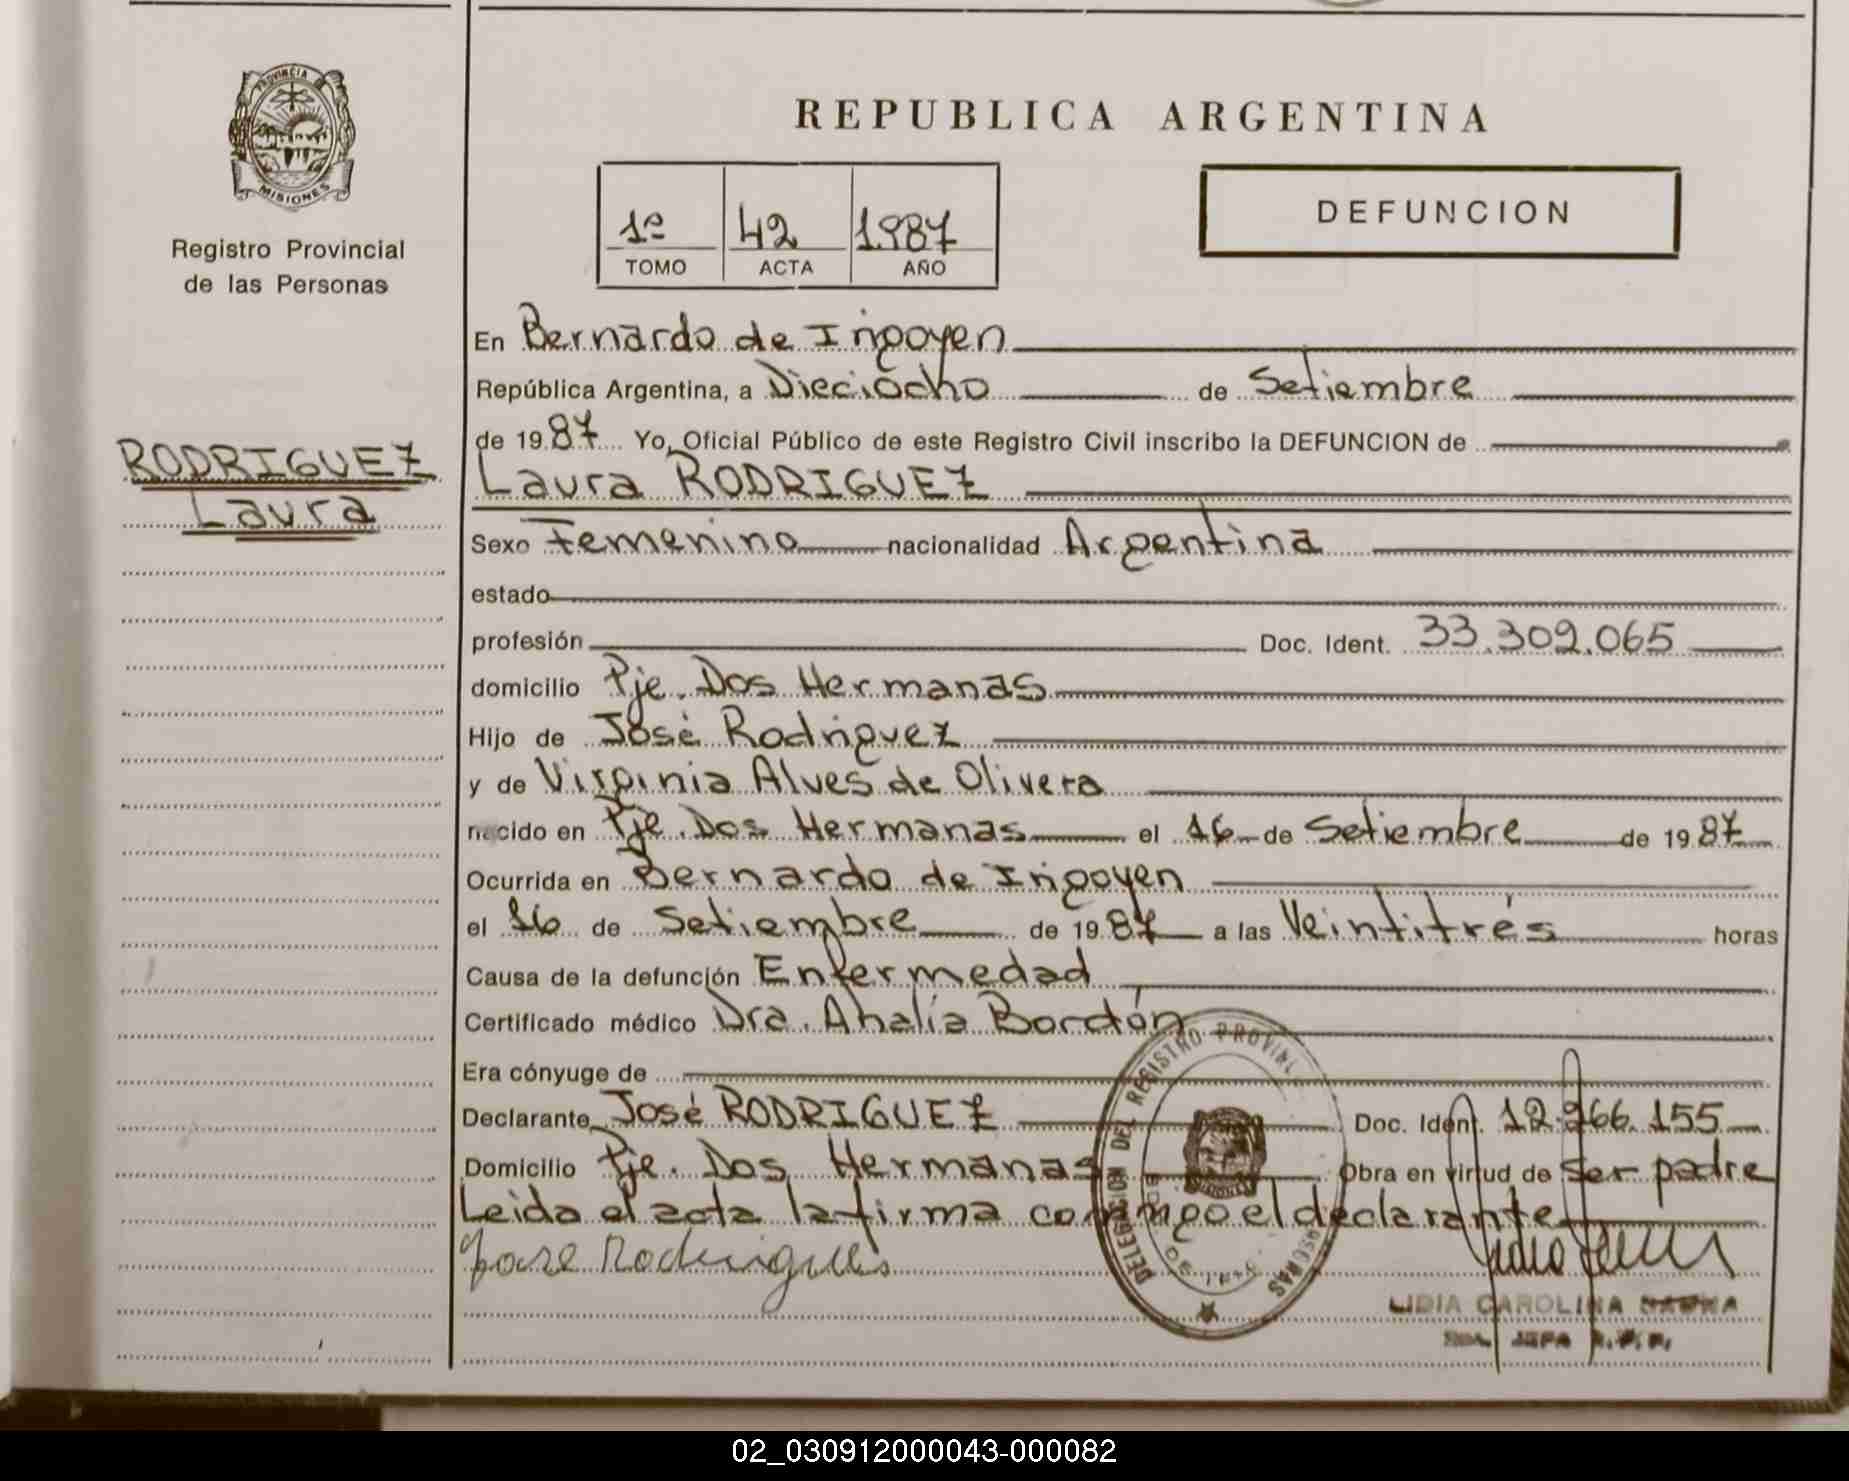 PROVINCIA DE
MISIONES
Registro Provincial
de las Personas
RODRIGUEZ
Laura
REPUBLICA ARGENTINA
1º 42 1.987
TOMO ACTA AÑO
DEFUNCION
En Bernardo de Irigoyen
República Argentina, a Dieciocho de Setiembre
de 1987 Yo, Oficial Público de este Registro Civil inscribo la DEFUNCION de
Laura RODRIGUEZ
Sexo Femenino nacionalidad Argentina
estado
profesión Doc. Ident. 33.309.065
domicilio Pje. Dos Hermanas
Hijo de José Rodriguez
y de Virginia Alves de Olivera
nacido en Pje. Dos Hermanas el 16 de Setiembre de 1987
Ocurrida en Bernardo de Irigoyen
el 16 de Setiembre de 1987 a las Veintitrés horas
Causa de la defunción Enfermedad
Certificado médico Dra. Ahalía Bordón
Era cónyuge de
Declarante José RODRIGUEZ Doc. Ident. 12.966.155
Domicilio Pje. Dos Hermanas Obra en virtud de Ser padre
Leida el acta la firma conmigo el declarante
Jose Rodrigues
DELEGACION DEL REGISTRO PROVINC
LIDIA CAROLINA
JEFA R.P.P.
02_030912000043-000082